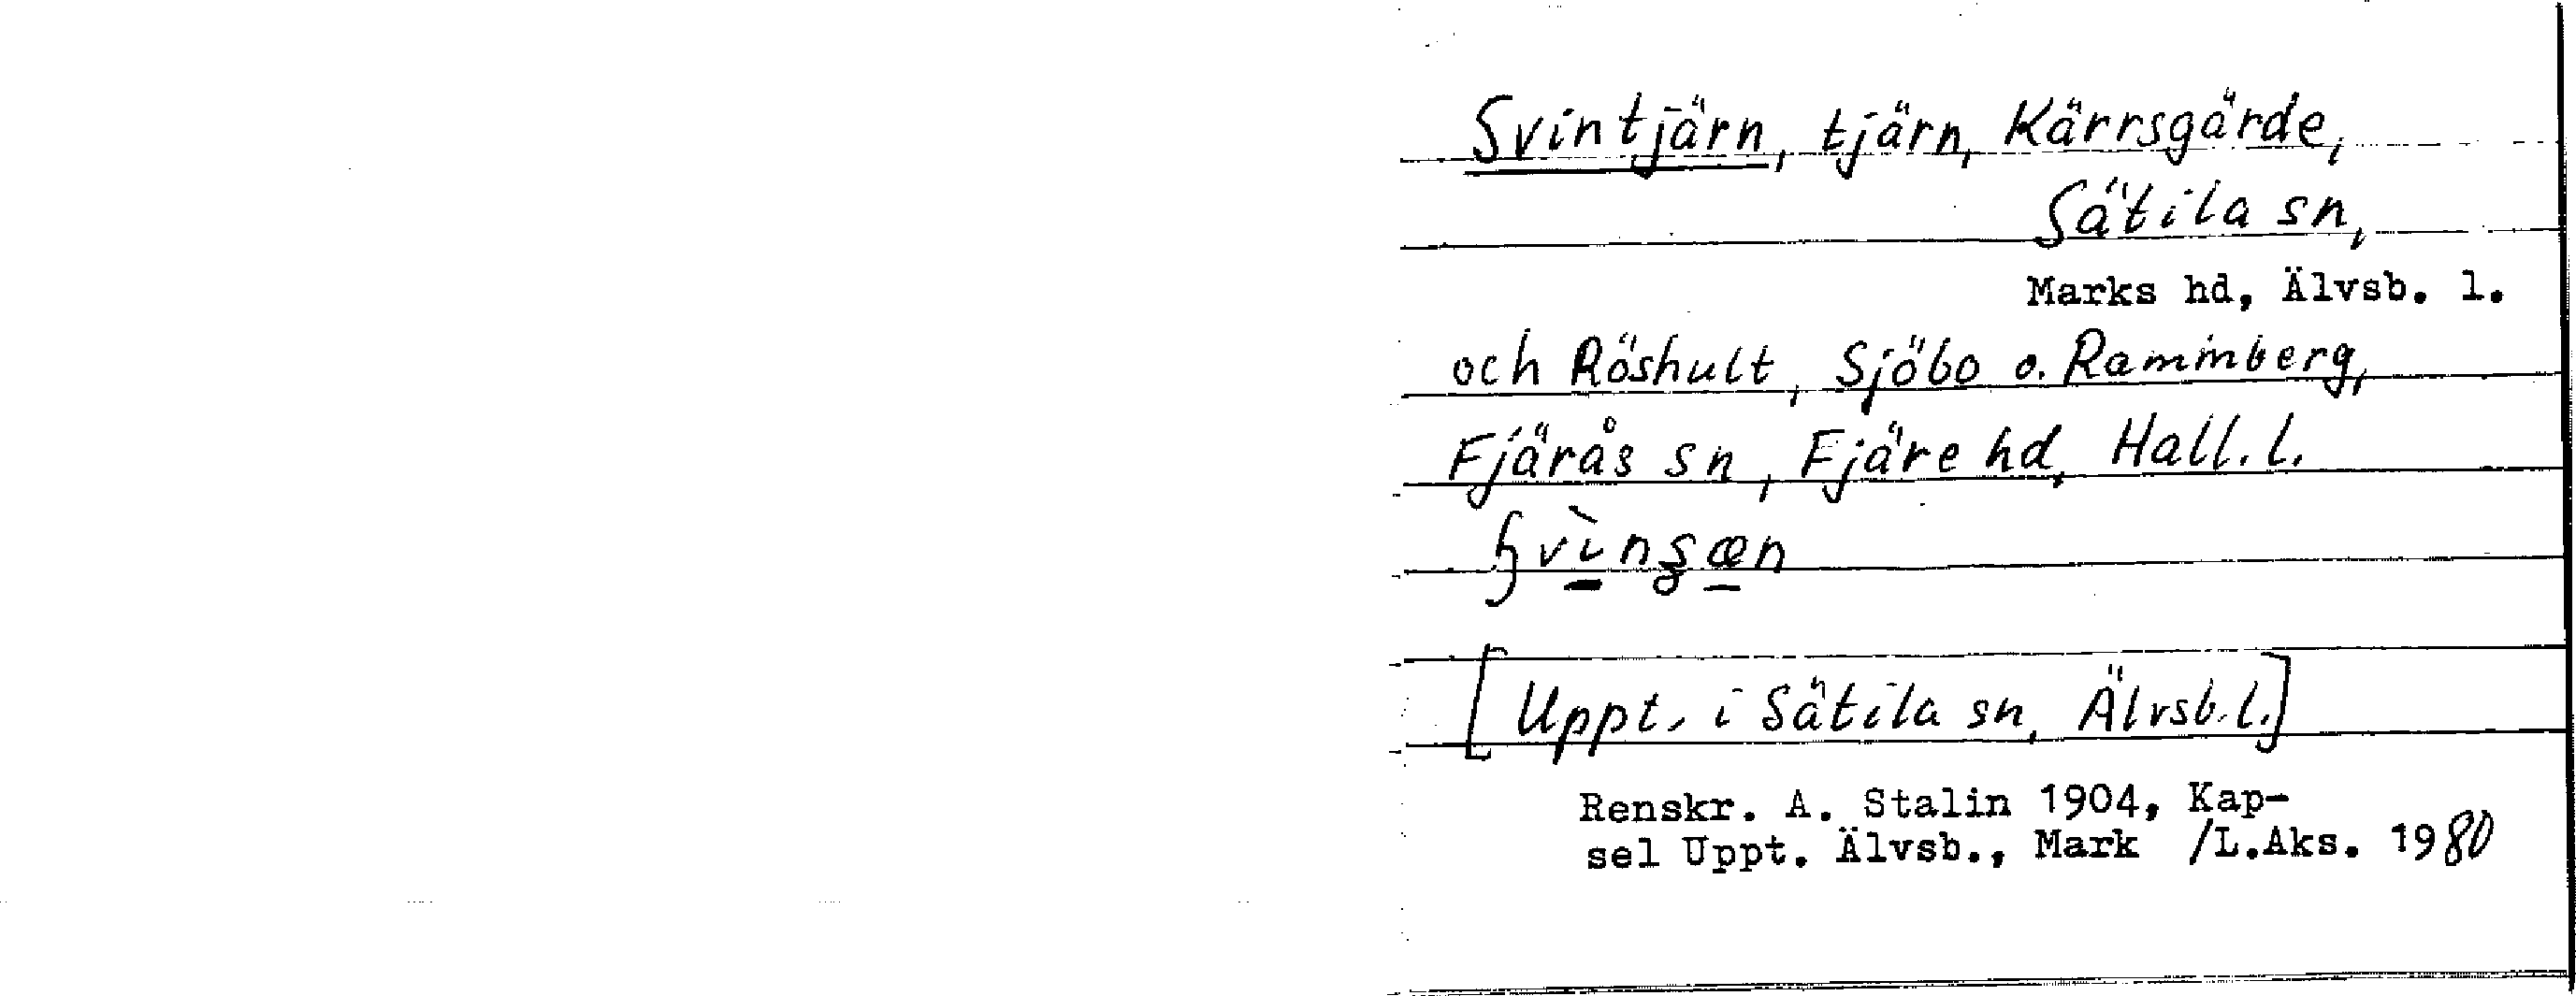 Svintjärn, tjärn, Kärrsgärde,
Sätila sn,
Marks hd, Älvsb. l.
och Röshult, Sjöbo o. Rammberg,
Fjärås sn, Fjäre hd, Hall. l.
[Uppt. i Sätila sn, Älvsb. l.]
Renskr. A. Stalin 1904, Kap-
sel Uppt. Älvsb., Mark /L.Aks. 1980